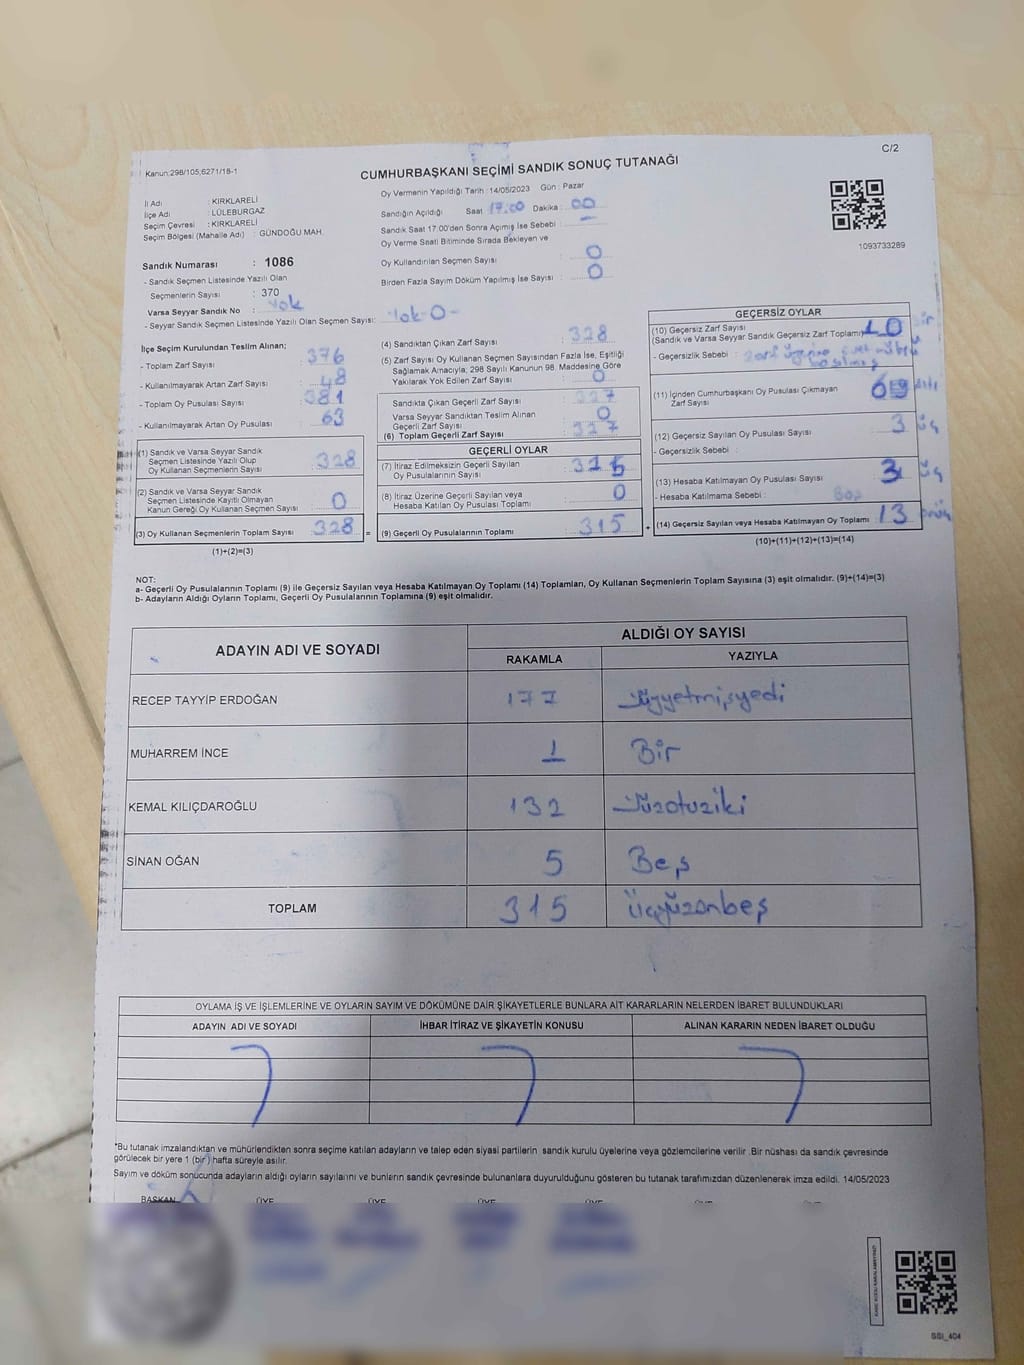 C/2
Kanun:298/105;6271/18-1
CUMHURBAŞKANI SEÇİMİ SANDIK SONUÇ TUTANAĞI
İl Adı : KIRKLARELİ
İlçe Adı : LÜLEBURGAZ
Seçim Çevresi : KIRKLARELİ
Seçim Bölgesi (Mahalle Adı) : GÜNDOĞU MAH.
Oy Vermenin Yapıldığı Tarih : 14/05/2023 Gün : Pazar
Sandığın Açıldığı Saat 17:00 Dakika : 00
Sandık Saat 17:00'den Sonra Açılmış İse Sebebi : -
Oy Verme Saati Bitiminde Sırada Bekleyen ve
Oy Kullandırılan Seçmen Sayısı : 0
Birden Fazla Sayım Döküm Yapılmış İse Sayısı : 0
1093733289
Sandık Numarası : 1086
- Sandık Seçmen Listesinde Yazılı Olan
Seçmenlerin Sayısı : 370
Varsa Seyyar Sandık No : Yok
- Seyyar Sandık Seçmen Listesinde Yazılı Olan Seçmen Sayısı: Yok-0-
İlçe Seçim Kurulundan Teslim Alınan;
- Toplam Zarf Sayısı : 376
- Kullanılmayarak Artan Zarf Sayısı : 48
- Toplam Oy Pusulası Sayısı : 381
- Kullanılmayarak Artan Oy Pusulası : 63
(1) Sandık ve Varsa Seyyar Sandık
Seçmen Listesinde Yazılı Olup
Oy Kullanan Seçmenlerin Sayısı : 328
(2) Sandık ve Varsa Seyyar Sandık
Seçmen Listesinde Kayıtlı Olmayan
Kanun Gereği Oy Kullanan Seçmen Sayısı : 0
(3) Oy Kullanan Seçmenlerin Toplam Sayısı : 328 =
(1)+(2)=(3)
(4) Sandıktan Çıkan Zarf Sayısı : 328
(5) Zarf Sayısı Oy Kullanan Seçmen Sayısından Fazla İse, Eşitliği
Sağlamak Amacıyla; 298 Sayılı Kanunun 98. Maddesine Göre
Yakılarak Yok Edilen Zarf Sayısı : 0
Sandıkta Çıkan Geçerli Zarf Sayısı : 327
Varsa Seyyar Sandıktan Teslim Alınan
Geçerli Zarf Sayısı : 0
(6) Toplam Geçerli Zarf Sayısı : 327
GEÇERLİ OYLAR
(7) İtiraz Edilmeksizin Geçerli Sayılan
Oy Pusulalarının Sayısı : 315
(8) İtiraz Üzerine Geçerli Sayılan veya
Hesaba Katılan Oy Pusulası Toplamı : 0
(9) Geçerli Oy Pusulalarının Toplamı : 315 +
GEÇERSİZ OYLAR
(10) Geçersiz Zarf Sayısı
(Sandık ve Varsa Seyyar Sandık Geçersiz Zarf Toplamı) Bir
- Geçersizlik Sebebi : Zarf üzerine
(11) İçinden Cumhurbaşkanı Oy Pusulası Çıkmayan
Zarf Sayısı : 6 altı
(12) Geçersiz Sayılan Oy Pusulası Sayısı : 3 üç
- Geçersizlik Sebebi :
(13) Hesaba Katılmayan Oy Pusulası Sayısı : 3 üç
- Hesaba Katılmama Sebebi : Boş
(14) Geçersiz Sayılan veya Hesaba Katılmayan Oy Toplamı : 13 onüç
(10)+(11)+(12)+(13)=(14)
NOT:
a- Geçerli Oy Pusulalarının Toplamı (9) ile Geçersiz Sayılan veya Hesaba Katılmayan Oy Toplamı (14) Toplamları, Oy Kullanan Seçmenlerin Toplam Sayısına (3) eşit olmalıdır. (9)+(14)=(3)
b- Adayların Aldığı Oyların Toplamı, Geçerli Oy Pusulalarının Toplamına (9) eşit olmalıdır.
ADAYIN ADI VE SOYADI ALDIĞI OY SAYISI
RAKAMLA YAZIYLA
RECEP TAYYİP ERDOĞAN 177 Yüzyetmişyedi
MUHARREM İNCE 1 Bir
KEMAL KILIÇDAROĞLU 132 Yüzotuziki
SİNAN OĞAN 5 Beş
TOPLAM 315 Üçyüzonbeş
OYLAMA İŞ VE İŞLEMLERİNE VE OYLARIN SAYIM VE DÖKÜMÜNE DAİR ŞİKAYETLERLE BUNLARA AİT KARARLARIN NELERDEN İBARET BULUNDUKLARI
ADAYIN ADI VE SOYADI İHBAR İTİRAZ VE ŞİKAYETİN KONUSU ALINAN KARARIN NEDEN İBARET OLDUĞU
*Bu tutanak imzalandıktan ve mühürlendikten sonra seçime katılan adayların ve talep eden siyasi partilerin sandık kurulu üyelerine veya gözlemcilerine verilir .Bir nüshası da sandık çevresinde
görülecek bir yere 1 (bir) hafta süreyle asılır.
Sayım ve döküm sonucunda adayların aldığı oyların sayılarını ve bunların sandık çevresinde bulunanlara duyurulduğunu gösteren bu tutanak tarafımızdan düzenlenerek imza edildi. 14/05/2023
BAŞKAN ÜYE ÜYE ÜYE ÜYE ÜYE ÜYE
SSI_404